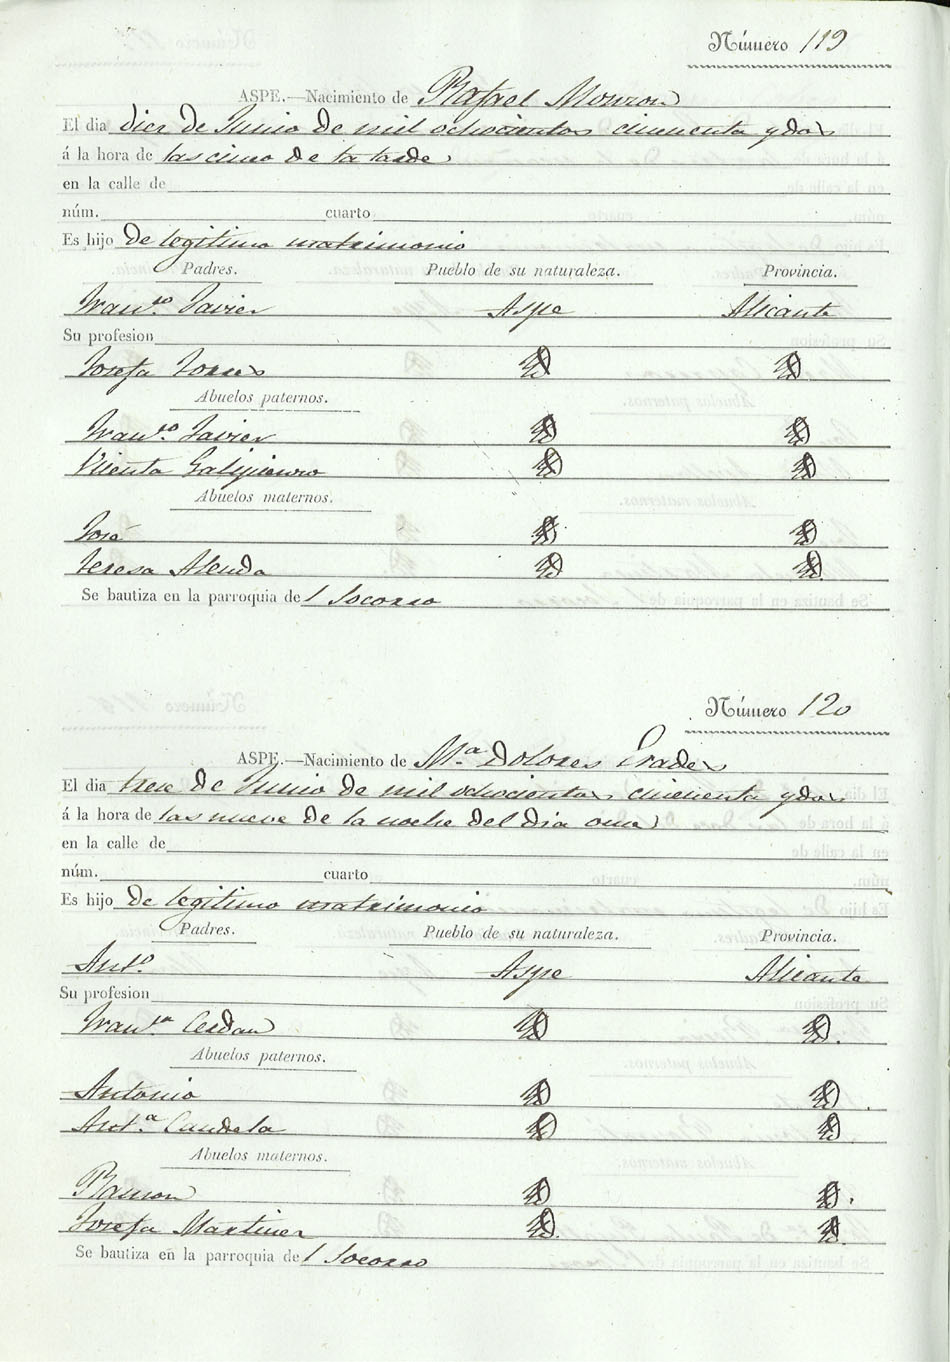 Número 119
ASPE.—Nacimiento de Rafael Monzon
El dia diez de Junio de mil ochocientos cincuenta y dos
á la hora de las cinco de la tarde
en la calle de
núm. cuarto
Es hijo de legitimo matrimonio
Padres. Pueblo de su naturaleza. Provincia.
Fran.co Javier Aspe Alicante
Su profesion
Josefa Torres
Abuelos paternos.
Fran.co Javier
Vicenta Galipienzo
Abuelos maternos.
José
Teresa Alenda
Se bautiza en la parroquia del Socorro
Número 120
ASPE.—Nacimiento de M.a Dolores Prades
El dia trece de Junio de mil ochocientos cincuenta y dos
á la hora de las nueve de la noche del dia once
en la calle de
núm. cuarto
Es hijo de legitimo matrimonio
Padres. Pueblo de su naturaleza. Provincia.
Ant.o Aspe Alicante
Su profesion
Fran.ca Cerdan
Abuelos paternos.
Antonio
Ant.a Candela
Abuelos maternos.
Ramon
Josefa Martinez
Se bautiza en la parroquia del Socorro